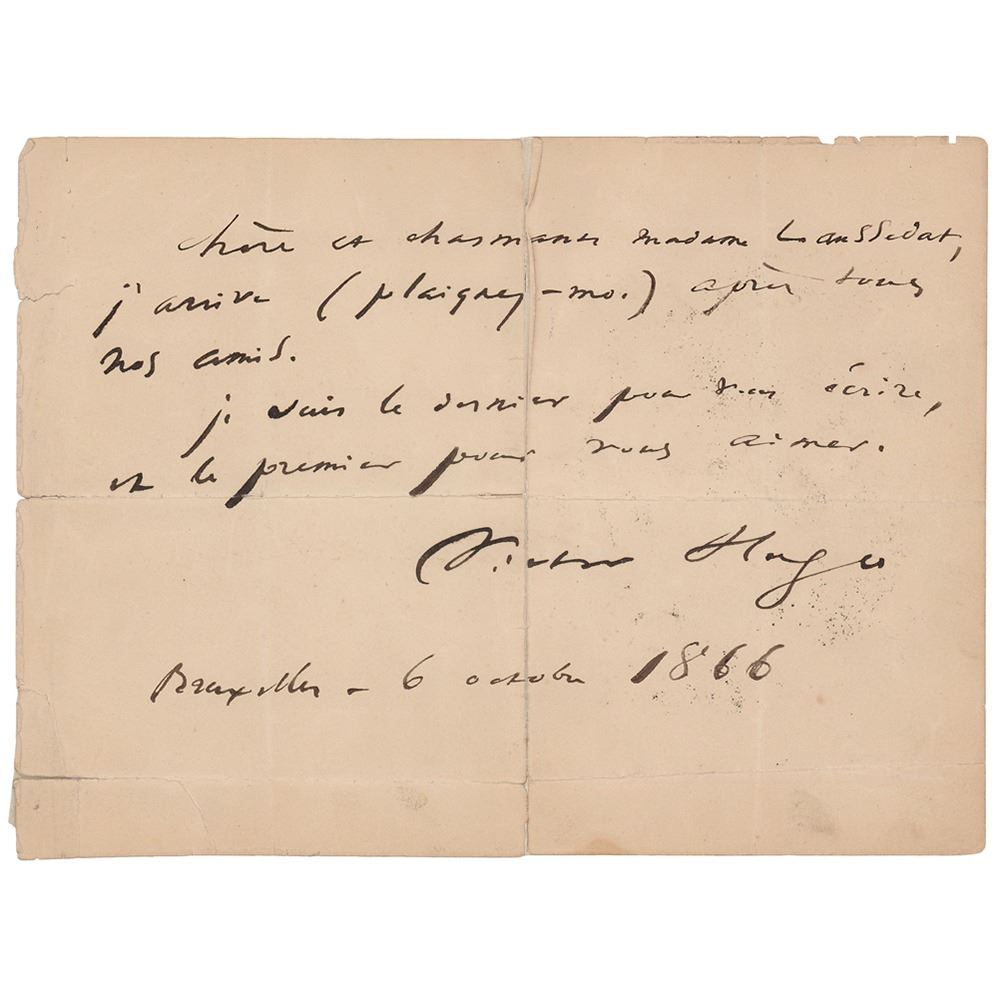 chère et charmante madame Laussedat,
j'arrive (plaignez-moi) après tous
nos amis.
je suis le dernier pour vous écrire,
et le premier pour vous aimer.
Victor Hugo
Bruxelles - 6 octobre 1866